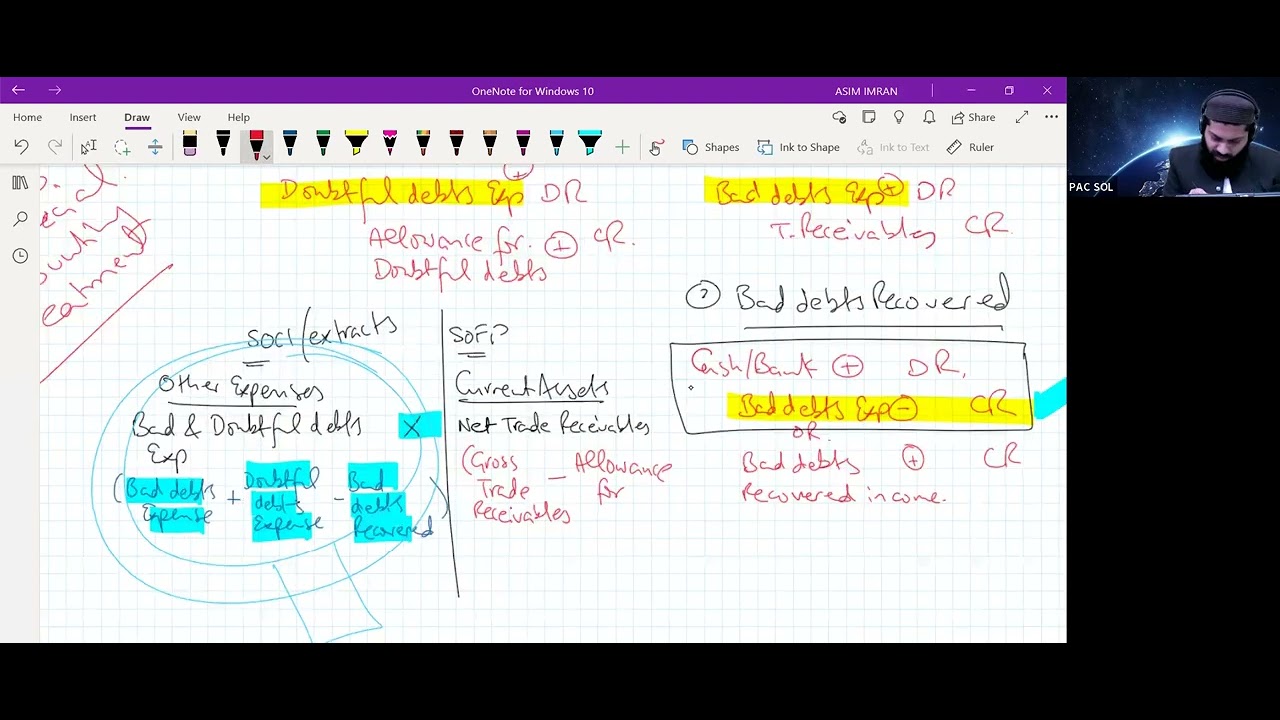 OneNote for Windows 10
ASIM IMRAN
Home
Insert
Draw
View
Help
Share
Shapes
Ink to Shape
Ink to Text
Ruler
PAC SOL
Doubtful debts Exp + DR
Allowance for + CR.
Doubtful debts
Bad debts Exp + DR
T. Receivables CR.
? Bad debts Recovered
Cash/Bank + DR.
Bad debts Exp - CR
OR.
Bad debts + CR
Recovered income.
SOCI/extracts
Other Expenses
Bad & Doubtful debts X
Exp
(Bad debts Expense + Doubtful debts Expense - Bad debts Recovered)
SOFP
Current Assets
Net Trade Receivables
(Gross Trade Receivables - Allowance for